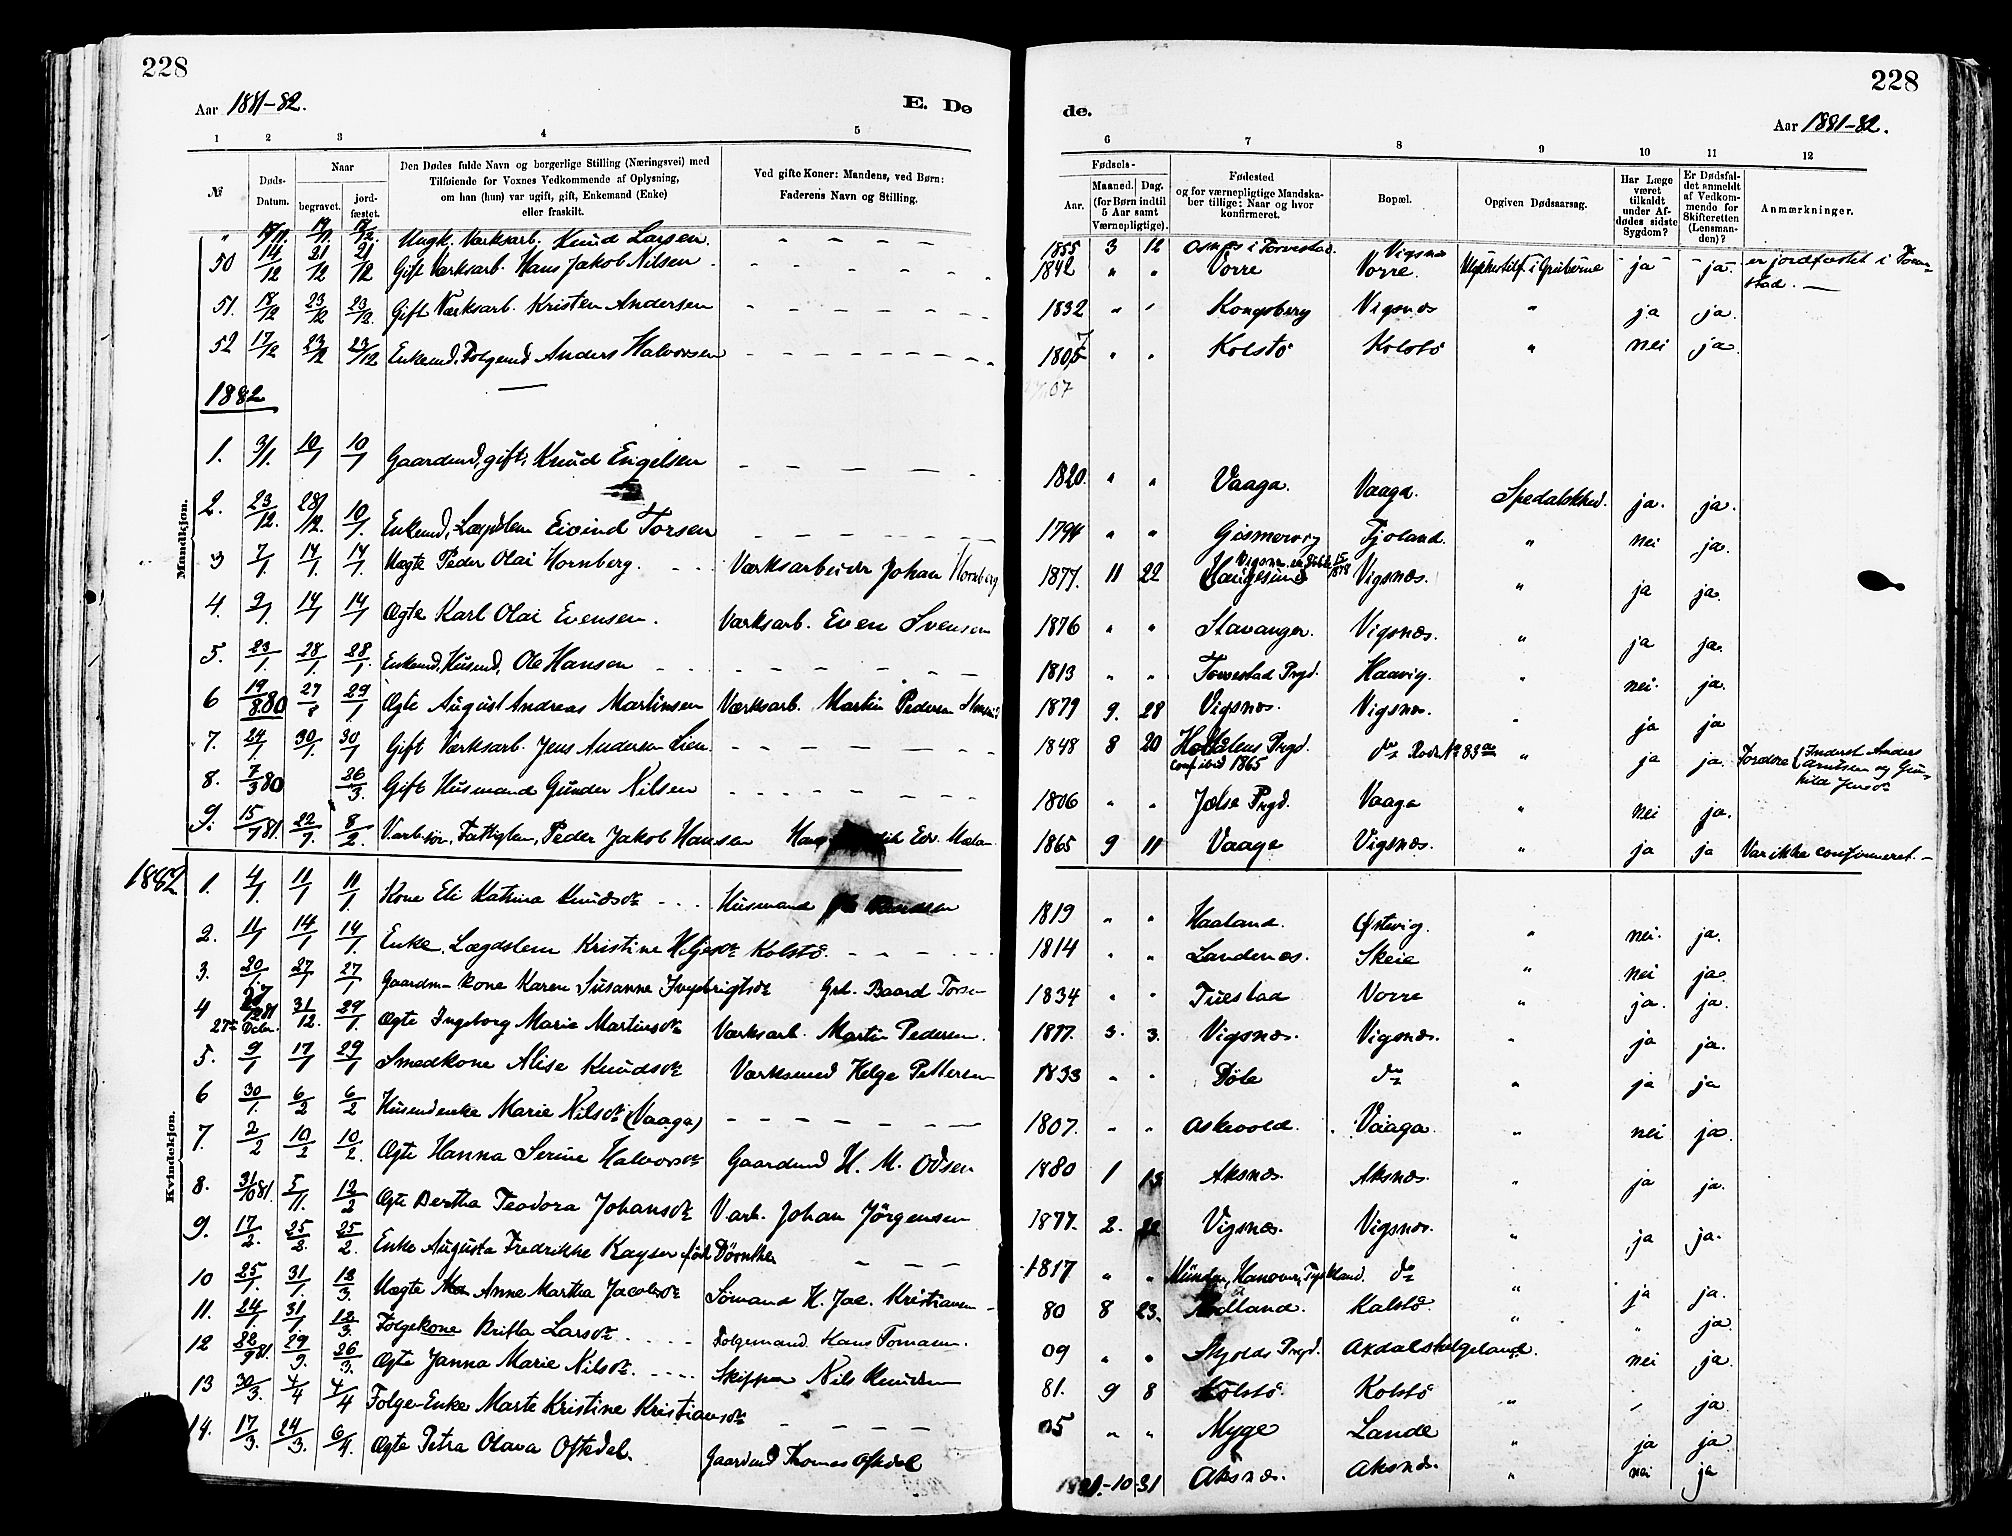 228
Aar 1881-82.
E. De
1 2 3 4 5
№
Døds-Datum.
Naar
begravet.
jord-fæstet.
Den Dødes fulde Navn og borgerlige Stilling (Næringsvei) med
Tilføiende for Voxnes Vedkommende af Oplysning,
om han (hun) var ugift, gift, Enkemand (Enke)
eller fraskilt.
Ved gifte Koner: Mandens, ved Børn:
Faderens Navn og Stilling.
Mandkjøn.
" 19/11 Ungk. Værksarb. Knud Larsen.
50 14/12 21/12 21/12 Gift Værksarb. Hans Jakob Nilsen
51. 18/12 23/12 23/12. Gift Værksarb. Kristen Andersen
52 17/12 23/12 23/12 Enkemd. Folgemd Anders Halvorsen
1882
1. 3/1. 10/1 10/1 Gaardmd, gift, Knud Engelsen
2. 23/12. 28/12. 10/1. Enkemd, Lægdslem Eivind Torsen
3 7/1. 14/1. 14/1. Uægte Peder Olai Hornberg. Værksarbeider Johan Hornberg
4. 2/1. 14/1 14/1 Ægte Karl Olai Evensen. Værksarb. Even Svensen
5. 23/1. 28/1. 28/1. Enkemd, Husmd, Ole Hansen
6 19/8 80 27/8 29/1 Ægte August Andreas Martinsen Værksarb. Martin Pedersen
7. 24/1 30/1. 30/1 Gift Værksarb. Jens Andersen Lien
8. 7/3 80 26/3. Gift Husmand Gunder Nilsen
9. 15/7 81. 22/7. 8/2. Fattiglem, Peder Jakob Hansen
Kvindekjøn.
1882
1. 4/1. 11/1 11/1. Kone Eli Katrina Knudsdtr Husmand
2. 11/1 14/1 14/1. Enke, Lægdslem Kristine Kolstö.
3. 20/1 27/1 27/1 Gaardm-kone Karen Susanne Baard Torsen
4 27de Debr. 31/12. 29/1. Ægte Ingeborg Marie Martinsdtr Værksarb. Martin Pedersen.
5. 9/1 17/1 29/1 Smedkone Alise Knudsdtr Værksmed Helge Pettersen
6 30/1. 6/2 6/2 Husmdenke Marie Nilsdtr (Vaaga)
7. 2/2 10/2 10/2. Ægte Hanna Serine Halvorsdtr Gaardmd H. M. Odsen
8. 31/10 81. 5/11. 12/2 Ægte Bertha Teodora Johansdtr Varb. Johan Jörgensen
9. 17/2. 25/2. 25/2. Enke Augusta Fredrikke Kayser
10 25/1. 31/1. 12/3. Uægte Anne Martha Jacobsdtr Sömand H. Jac. Kristiansen
11. 24/1. 31/1. 12/3. Folgekone Britta Larsdtr Folgemand Hans Tomasen.
12 22/9 81. 29/9. 26/3. Ægte Janna Marie Nilsdtr. Skipper Nils Knudsen
13 30/3. 4/4 4/4 Folge-Enke Marte Kristine Kristiansdtr
14. 17/3. 24/3. 6/4. Ægte Petra Olava Oftedal. Gaardmd Thomas Oftedal
228
de.
Aar 1881-82.
6 7 8 9 10 11 12
Fødsels-
Aar.
Maaned. Dag.
(for Børn indtil
5 Aar samt
Værnepligtige).
Fødested
og for værnepligtige Mandska-
ber tillige: Naar og hvor
konfirmeret.
Bopæl.
Opgiven Dødsaarsag.
Har Læge
været
tilkaldt
under Af-
dødes sidste
Sygdom?
Er Dødsfal-
det anmeldt
af Vedkom-
mende for
Skifteretten
(Lensman-
den)?
Anmærkninger.
1855 3 12 Osnæs i Torvestad Vigsnæs
1842 " " Vorre Vorre. Ulykkestilf. i Gruberne ja ja. er jordfæstet i Torve-
stad.
1832 " " Kongsberg Vigsnæs " ja ja.
1805 7 " " Kolstö Kolstö " nei ja.
07
1820. " " Vaaga. Vaaga. Spedalskhed. ja. ja.
1794 " " Gismervig Fjoland. " nei ja.
1877. 11 22 Haugesund Vigsnæs. " ja ja.
1876 " " Stavanger. Vigsnæs. " ja ja.
1813 " " Torvestad Prgd. Haavig. " nei. ja.
1879 9. 28 Vigsnæs. Vigsnæs. " ja ja
1848 8 20 Prgd. do " ja ja. Forældre Inderst Anders
conf. ibid 1865
1806 " " Jelse Prgd. Vaaga " nei ja.
1865 9 11 Vaage Vigsnæs. " ja ja Var ikke confirmeret.
1819 " " Haaland. Østvig. " nei. ja.
1814 " " Landenæs. Skeie " nei ja.
1834 " " Tuestad Vorre " ja. ja.
1877. 3. 3. Vigsnæs. Vigsnæs. " ja ja.
1833 " " Döle do " ja ja
1807. " " Askevold. Vaaga. " nei ja.
1880 1 13 Aksnæs. Aksnæs. " ja ja.
1877. 2. 22 Vigsnæs. Vigsnæs. " ja ja.
1817 " " Münden, Hanover, Tyskland. do " ja ja.
80 8 23. Kalstö. " " ja
09 " " Skjolds Prgd. " nei ja.
81. 9 8 Kolstö. Kolstö " ja.
05 " " Myge Lande " ja ja
1881.-10-31 Aksnæs. Aksnæs. " nei ja